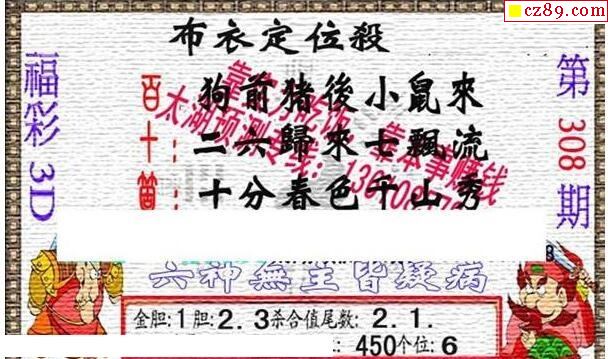 cz89.com
布衣定位殺
福彩3D
第308期
百:狗前猪後小鼠來
十:二六歸來七飄流
個:十分春色千山秀
靠實力吃饭,靠本事赚钱
太湖预测专线:
六神無主皆疑病
金胆:1胆:2.3杀合值尾数:2.1.
:450个位:6